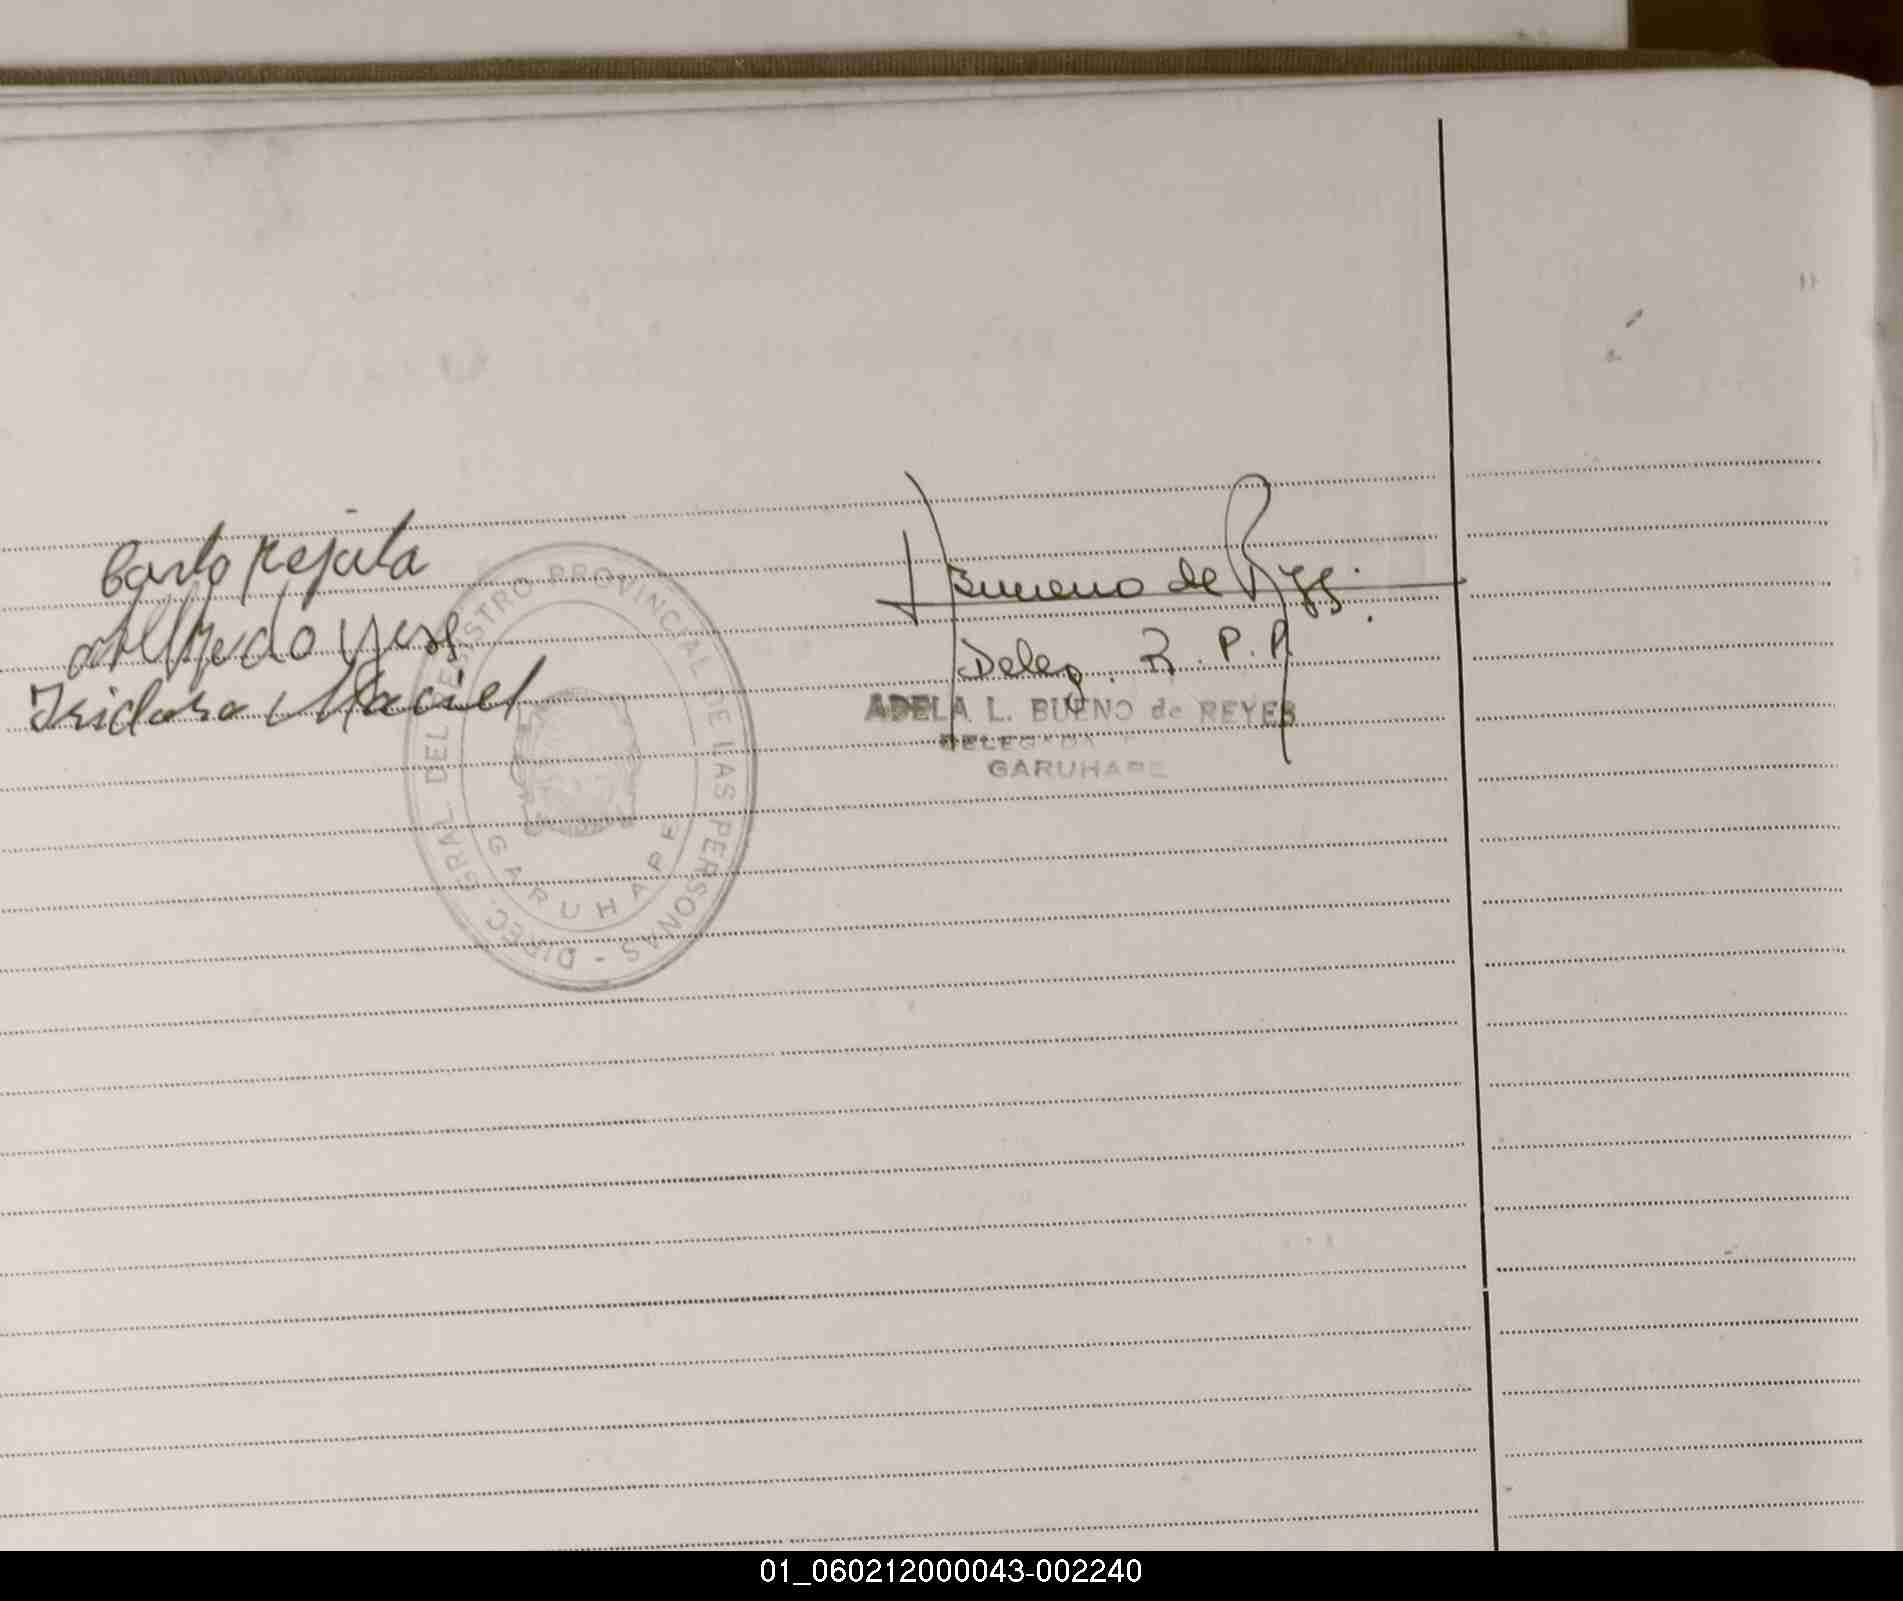 Carlo Rejala
Alfredo
Isidoro Maciel
DIREC. GRAL. DEL REGISTRO PROVINCIAL DE LAS PERSONAS -
GARUHAPE
Bueno de
Deleg. R.P.P.
ADELA L. BUENO de REYES
DELEGADA
GARUHAPE
01_060212000043-002240